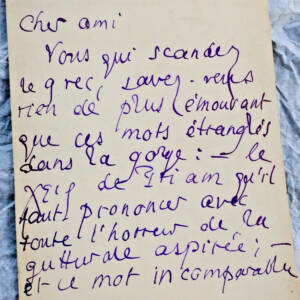 Cher ami
Vous qui scandez
le grec, savez-vous
rien de plus émouvant
que ces mots étranglés
dans la gorge : — le
de Priam qu'il
faut prononcer avec
toute l'horreur de la
gutturale aspirée ; —
et le mot incomparable